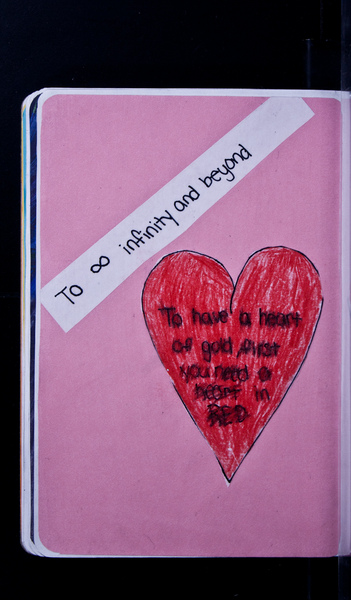 To ∞ infinity and beyond
To have a heart
of gold, first
you need a
heart in
RED